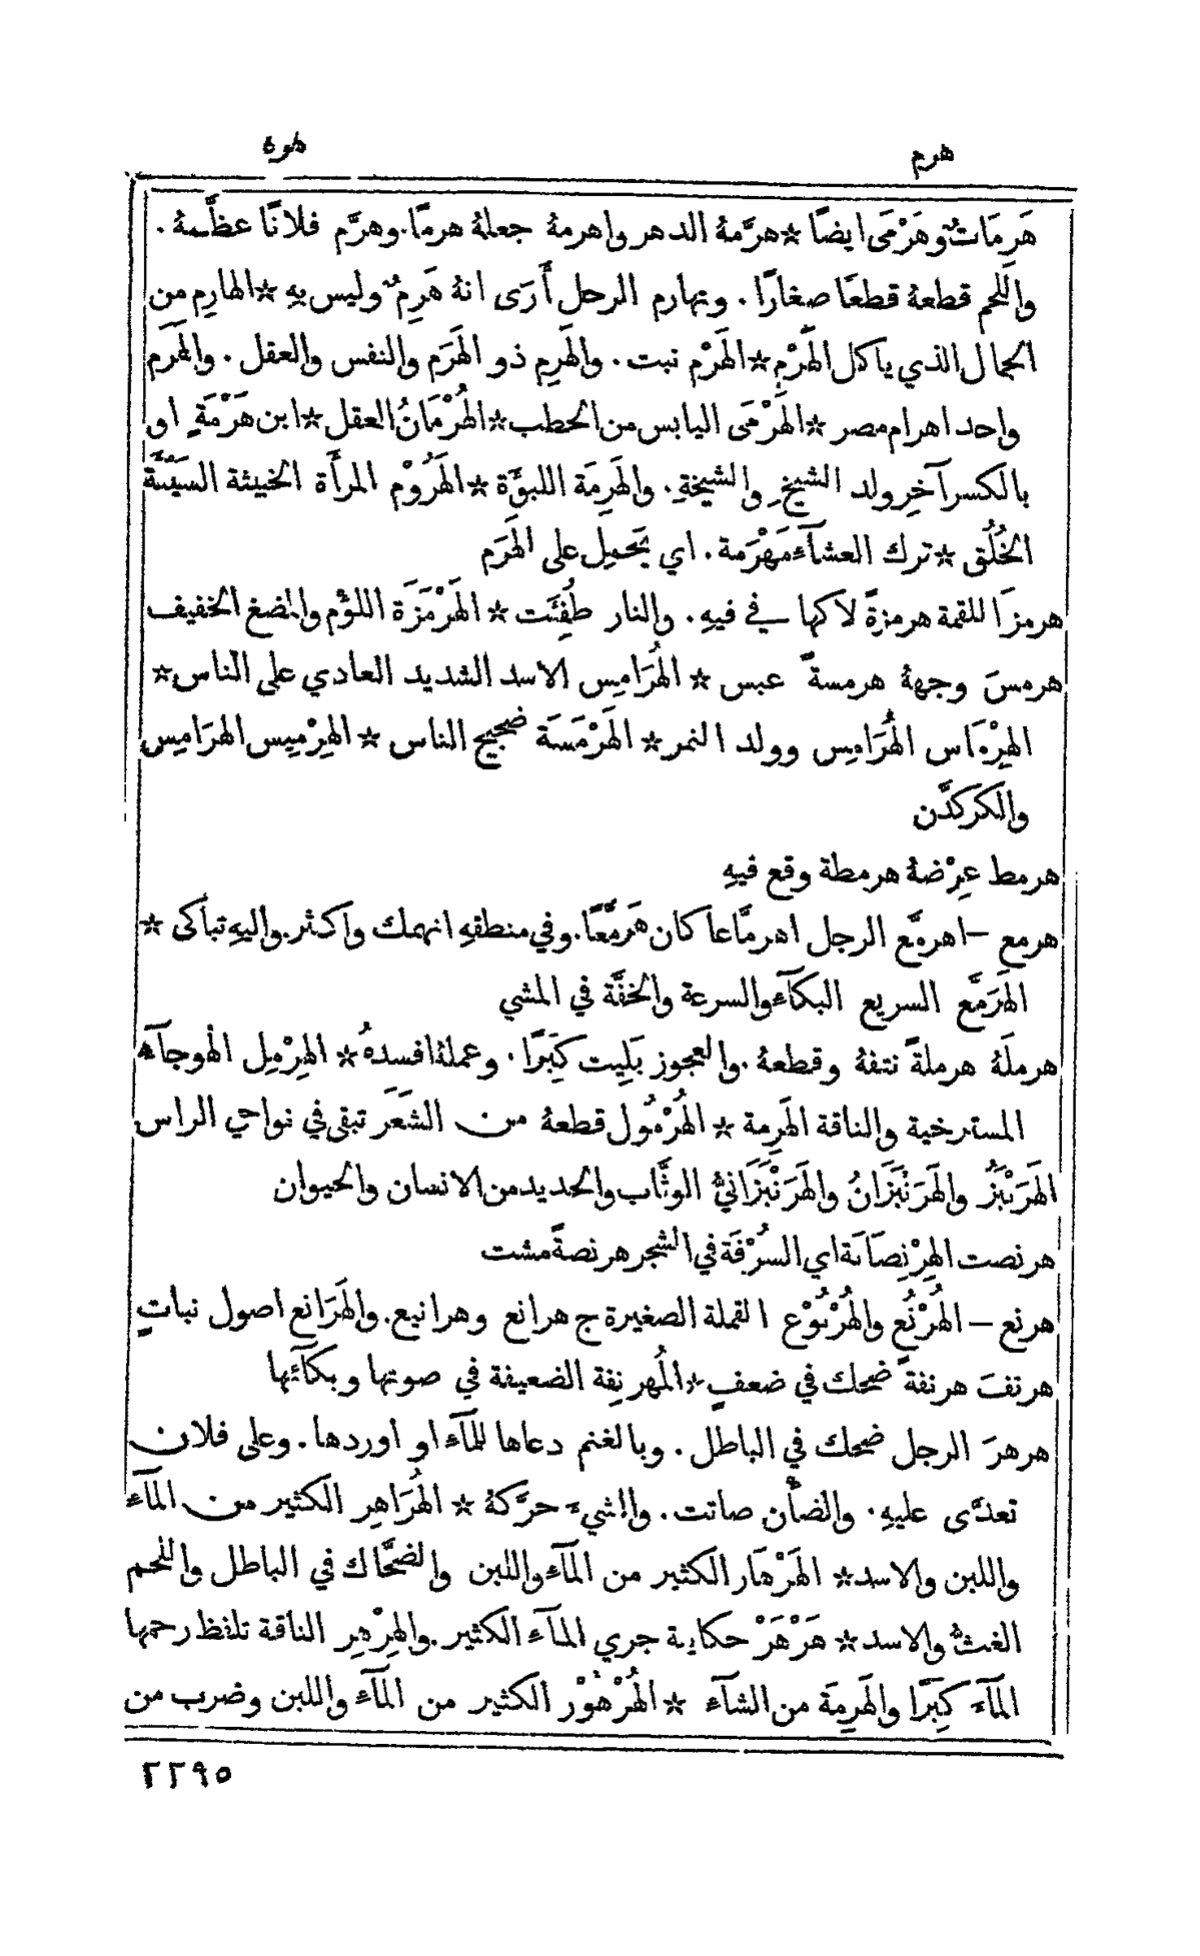 هرم هره
هَرِمَاتٌ وهَرْمَى ايضًا * هرَّمهُ الدهر واهرمهُ جعلهُ هرمًا. وهرَّم فلانًا عظَّمهُ.
واللحم قطعهُ قطعًا صغارًا. وتهارم الرجل أَرَى انهُ هَرِمٌ وليس بهِ * الهارِم من
الجمال الذي ياكل الهَرْمِ * الهَرْم نبت. والهَرِم ذو الهَرَم والنفس والعقل. والهَرَم
واحد اهرام مصر * الهَرْمَى اليابس من الحطب * الهُرْمَانُ العقل * ابن هَرْمَةٍ او
بالكسر آخِر ولد الشيخِ والشيخةِ. والهَرِمَة اللبوَّة * الهَرُوْم المرأَة الخبيثة السيِّئة
الخُلُق * ترك العشآء مَهْرَمة. اي يَحمِل على الهَرَم
هرمزَ اللقمة هرمزةً لاكها في فيهِ. والنار طُفِئَت * الهَرْمَزَة اللوُّم والمضغ الخفيف
هرمسَ وجههُ هرمسةً عبس * الهُرَامِس الاسد الشديد العادي على الناس *
الهِرْمَاس الهُرَامِس وولد النمر * الهَرْمَسَة ضجيج الناس * الهِرْمِيس الهرَامِس
والكَركدَّن
هرمط عِرْضهُ هرمطة وقع فيهِ
هرمع – اهرمَّع الرجل اهرمَّاعا كان هَرَمَّعًا. وفي منطقهِ انهمك واكثر. واليهِ تباكى *
الهَرَمَّع السريع البكآء والسرعة والخفَّة في المشي
هرملَهُ هرملةً نتفهُ وقطعهُ. والعجوز بَلِيت كِبَرًا. وعملهُ افسدهُ * الهِرْمِل الهوجآء
المسترخية والناقة الهَرِمة * الهُرْمُول قطعة من الشعَر تبقى في نواحي الراس
الهَرَنْبَزُ والهَرَنْبَزَانُ والهَرَنْبَزَانيُّ الوثَّاب والحديد من الانسان والحيوان
هرنصت الهِرْنِصَانَة اي السُرْفَة في الشجر هرنصةً مشت
هرنع – الهُرْنُع والهُرْنُوْع القملة الصغيرة ج هرانع وهرانيع. والهَرَانع اصول نباتٍ
هرنفَ هرنفةً ضحك في ضعفٍ * المُهرنِفة الضعيفة في صوتها وبكآئها
هرهرَ الرجل ضحك في الباطل. وبالغنم دعاها للمآء او اوردها. وعلى فلان
تعدَّى عليهِ. والضأْن صاتت. والشيءَ حرَّكهُ * الهُرَاهِر الكثير من المآء
واللبن والاسد * الهَرْهَار الكثير من المآء واللبن والضحَّاك في الباطل واللحم
الغثُّ والاسد * هَرْهَرْ حكاية جري المآء الكثير. والهِرْهِر الناقة تلفظ رحمها
المآءَ كِبَرًا والهَرِمَة من الشآء * الهُرْهُوْر الكثير من المآء واللبن وضرب من
٢٢٩٥